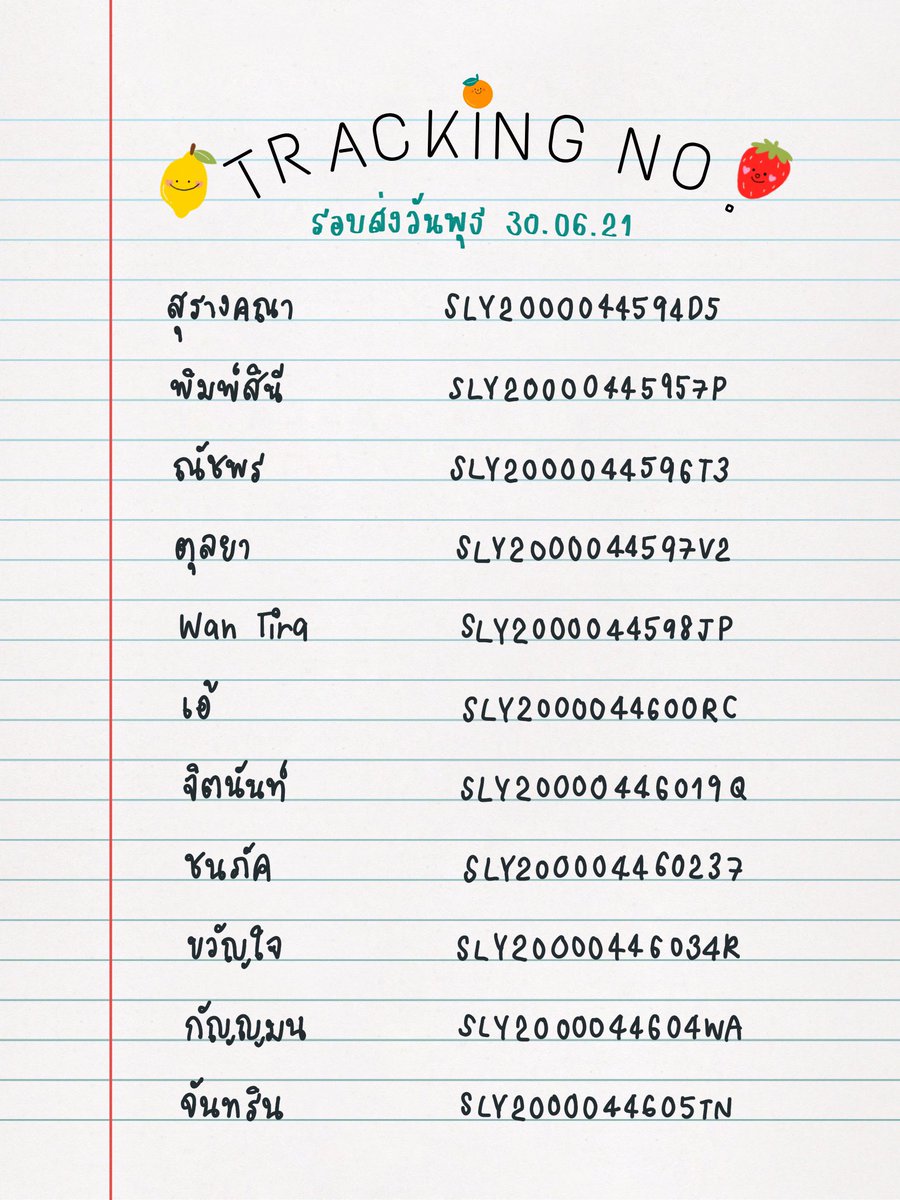 TRACKING NO.
รอบส่งวันพุธ 30.06.21
สุรางคณา SLY2000044594D5
พิมพ์สินี SLY20000445957P
ณัชพร SLY2000044596T3
ตุลยา SLY2000044597V2
Wan Tira SLY2000044598JP
เอ้ SLY2000044600RC
จิตนันท์ SLY20000446019Q
ชนภัค SLY200004460237
ขวัญใจ SLY20000446034R
กัญญมน SLY2000044604WA
จันทริน SLY2000044605TN